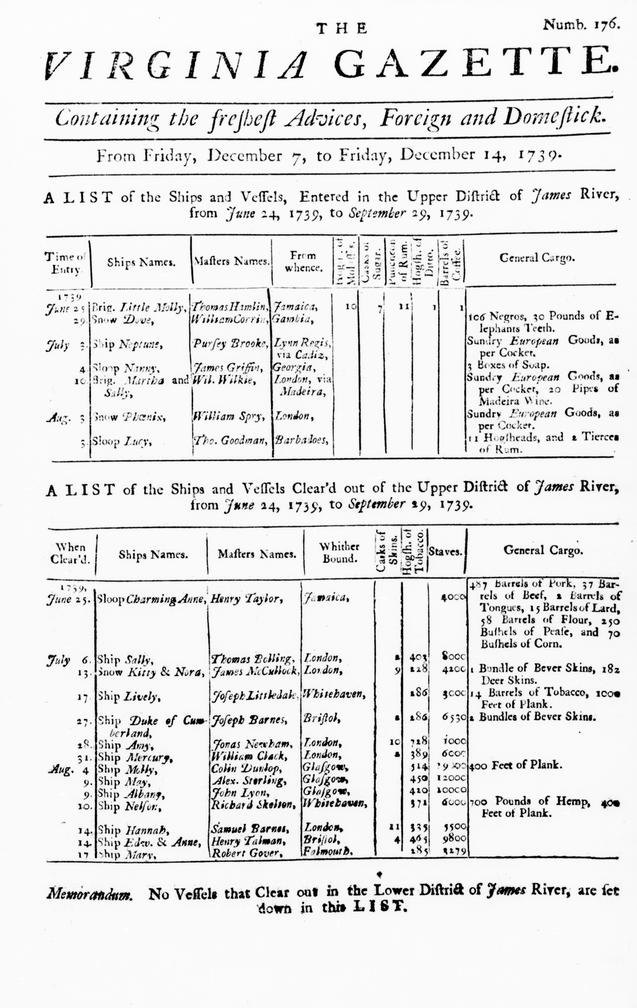 THE
Numb. 176.
VIRGINIA GAZETTE.
Containing the freſheſt Advices, Foreign and Domeſtick.
From Friday, December 7, to Friday, December 14, 1739.
A LIST of the Ships and Veſſels, Entered in the Upper Diſtrict of James River,
from June 24, 1739, to September 29, 1739.
Time of Entry. Ships Names. Maſters Names. From whence. Caſks of Sugar. of Rum. Hogſh. of Ditto. Barrels of Coffee. General Cargo.
1739
June 25 Brig. Little Molly, Thomas Hamlin, Jamaica, 10 7 11 1 1
29. Snow Dove, William Corrin, Gambia, 106 Negros, 30 Pounds of E-
lephants Teeth.
July 3. Ship Neptune, Purſey Brooke, Lynn Regis, Sundry European Goods, as
via Cadiz, per Cocket.
4. Sloop Nanny, James Griffin, Georgia, 3 Boxes of Soap.
10. Brig. Martha and Wil. Wilkie, London, via Sundry European Goods, as
Sally, Madeira, per Cocket, 20 Pipes of
Madeira Wine.
Aug. 3 Snow Phœnix, William Spry, London, Sundry European Goods, as
per Cocket.
3. Sloop Lucy, Tho. Goodman, Barbadoes, 11 Hogſheads, and 2 Tierces
of Rum.
A LIST of the Ships and Veſſels Clear'd out of the Upper Diſtrict of James River,
from June 24, 1739, to September 29, 1739.
When Clear'd. Ships Names. Maſters Names. Whither Bound. Caſks of Skins. Hogſh. of Tobacco. Staves. General Cargo.
1739, 487 Barrels of Pork, 37 Bar-
June 25. Sloop Charming Anne, Henry Taylor, Jamaica, 4000 rels of Beef, 2 Barrels of
Tongues, 15 Barrels of Lard,
58 Barrels of Flour, 250
Buſhels of Peaſe, and 70
Buſhels of Corn.
July 6. Ship Sally, Thomas Bolling, London, 2 403 8000
13. Snow Kitty & Nora, James McCullock, London, 9 228 4200 1 Bundle of Bever Skins, 182
Deer Skins.
17 Ship Lively, Joſeph Littledale, Whitehaven, 286 3000 14 Barrels of Tobacco, 1000
Feet of Plank.
27. Ship Duke of Cum- Joſeph Barnes, Briſtol, 2 286 6530 2 Bundles of Bever Skins.
berland,
28. Ship Amy, Jonas Newham, London, 10 728 1000
31. Ship Mercury, William Clack, London, 2 389 6000
Aug. 4 Ship Molly, Colin Dunlop, Glaſgow, 514 400 Feet of Plank.
9. Ship May, Alex. Sterling, Glaſgow, 450 12000
9. Ship Albany, John Lyon, Glaſgow, 410 10000
10. Ship Nelſon, Richard Skelton, Whitehaven, 371 6000 700 Pounds of Hemp, 400
Feet of Plank.
14. Ship Hannah, Samuel Barnes, London, 11 335 5500
14. Ship Edw. & Anne, Henry Talman, Briſtol, 4 465 9800
17 Ship Mary, Robert Gover, Falmouth. 285 3279
Memorandum. No Veſſels that Clear out in the Lower Diſtrict of James River, are ſet
down in this LIST.